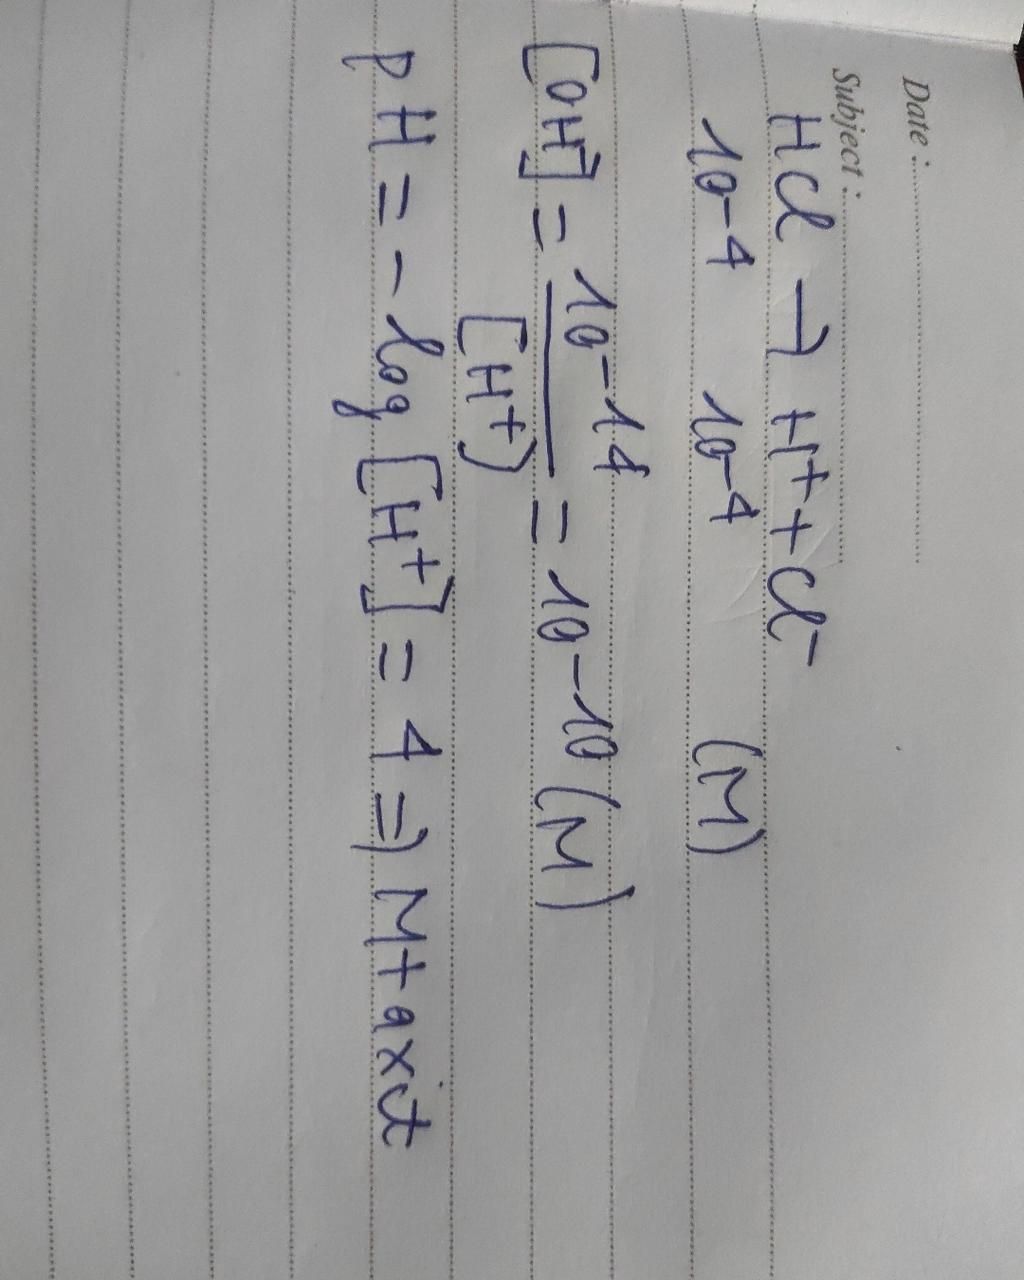 Date :
Subject :
HCl → H⁺ + Cl⁻
10⁻⁴ 10⁻⁴ (M)
[OH⁻] = 10⁻¹⁴ / [H⁺) = 10⁻¹⁰ (M)
pH = - log [H⁺] = 4 => Mt axit